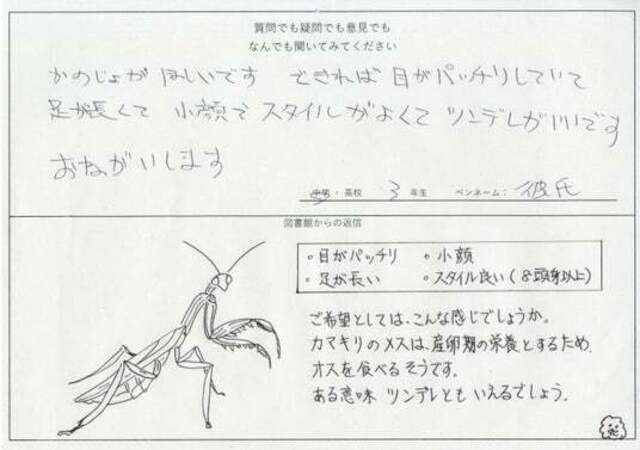 質問でも疑問でも意見でも
なんでも聞いてみてください
かのじょが ほしいです できれば 目がパッチリしていて
足が長くて 小顔で スタイルがよくて ツンデレがいいです
おねがいします
中学・高校 3 年生 ペンネーム：彼氏
図書館からの返信
・目がパッチリ ・小顔
・足が長い ・スタイル良い（8頭身以上）
ご希望としては、こんな感じでしょうか。
カマキリのメスは、産卵期の栄養とするため、
オスを食べるそうです。
ある意味 ツンデレともいえるでしょう。